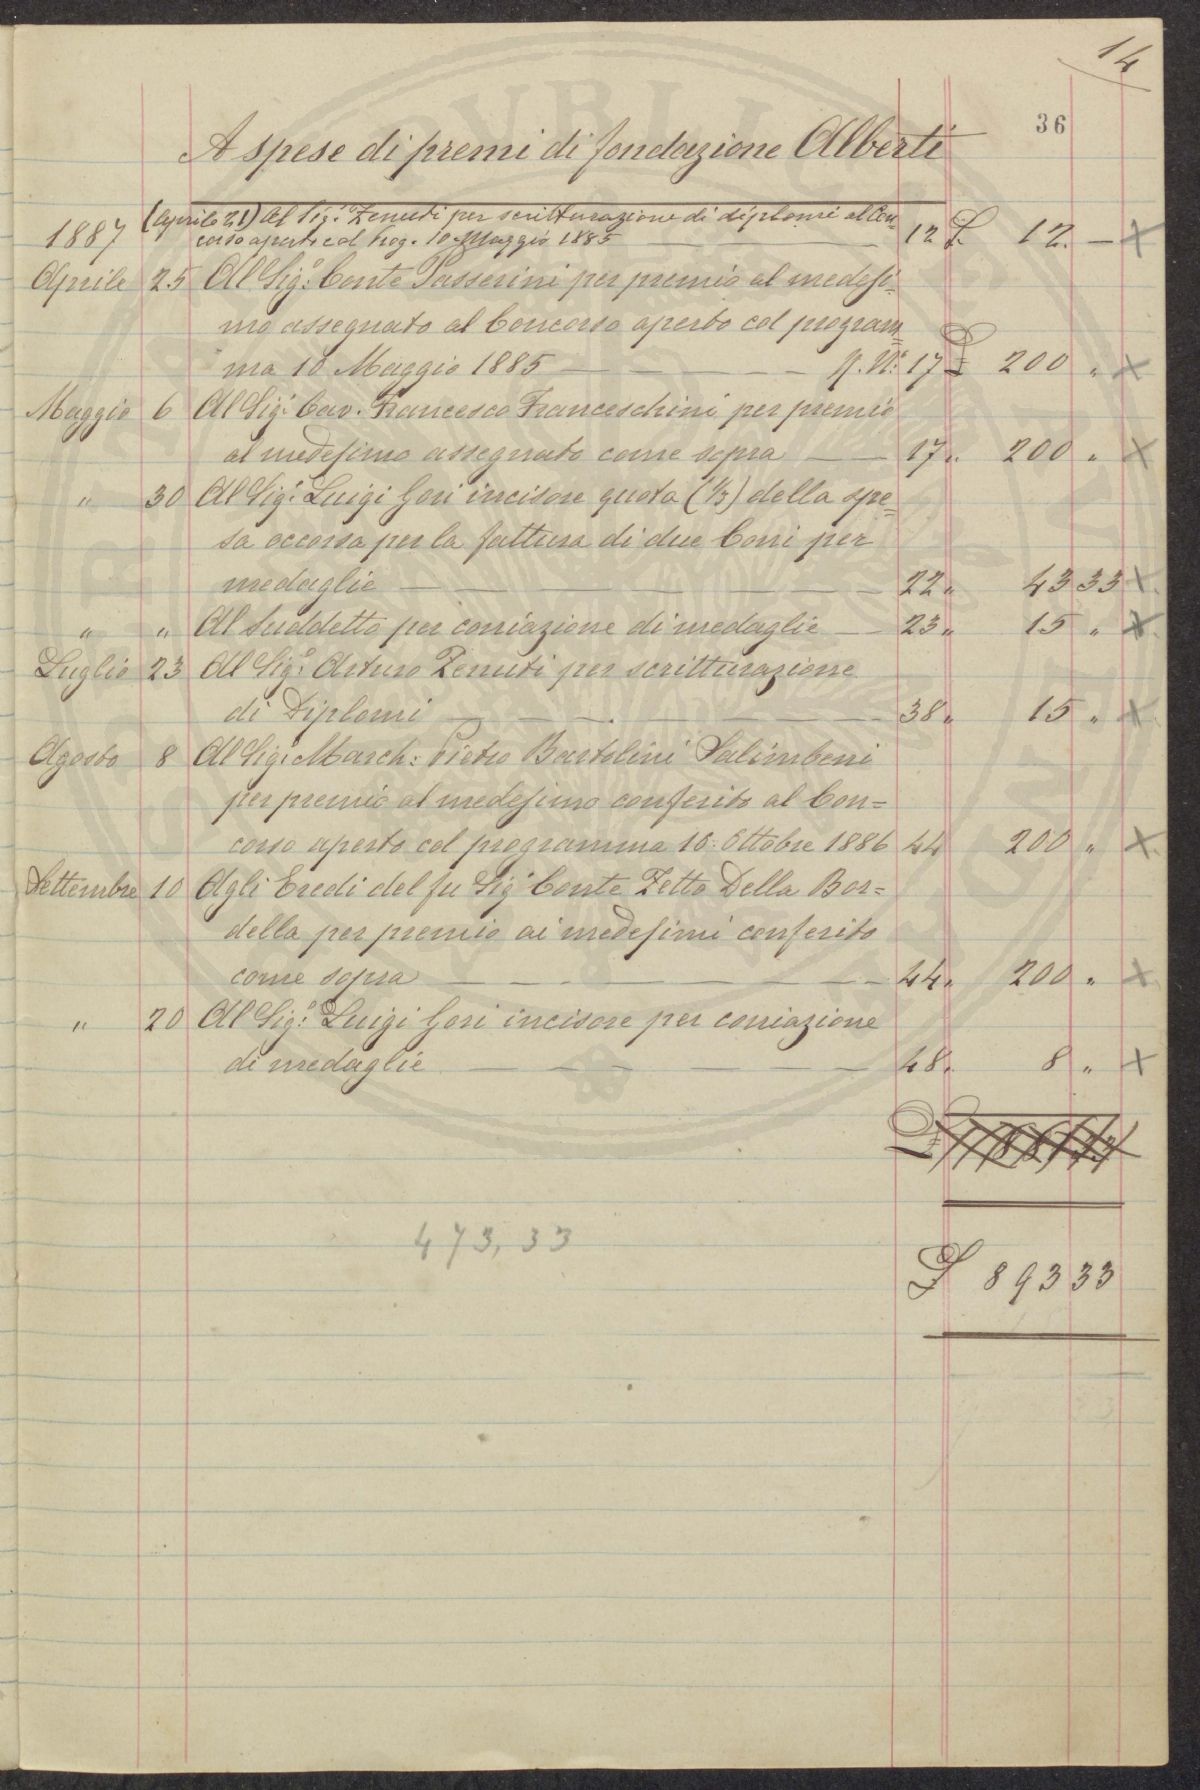 14
36
A spese di premi di fondazione Alberti
(Aprile 21) Al Sig.r Zenuti per scritturazione di diplomi al Con-
1887 corso aperto col Prog. 10 Maggio 1885 12 £. 12. —
Aprile 25 Al Sig.r Conte Passerini per premio al medesi-
mo assegnato al Concorso aperto col program=
ma 10 Maggio 1885 — — — — — R. N.° 17 £ 200 „
Maggio 6 Al Sig.r Cav. Francesco Franceschini per premio
al medesimo assegnato come sopra — — 17 „ 200 „
„ 30 Al Sig.r Luigi Gori incisore quota (1/3) della spe=
sa occorsa per la fattura di due Coni per
medaglie — — — — — — — 22 „ 43 33
„ „ Al Suddetto per coniazione di medaglie — 23 „ 15 „
Luglio 23 Al Sig.r Arturo Zenuti per scritturazione
di Diplomi — — — — — — 38 „ 15 „
Agosto 8 Al Sig.r March: Pietro Bartolini Salimbeni
per premio al medesimo conferito al Con=
corso aperto col programma 16 Ottobre 1886 44 200 „
Settembre 10 Agli Eredi del fu Sig.r Conte Zetto Della Bor=
della per premio ai medesimi conferito
come sopra — — — — — — — 44 „ 200 „
„ 20 Al Sig.r Luigi Gori incisore per coniazione
di medaglie — — — — — — 48 „ 8 „
£ 881 33
473,33
£ 893 33